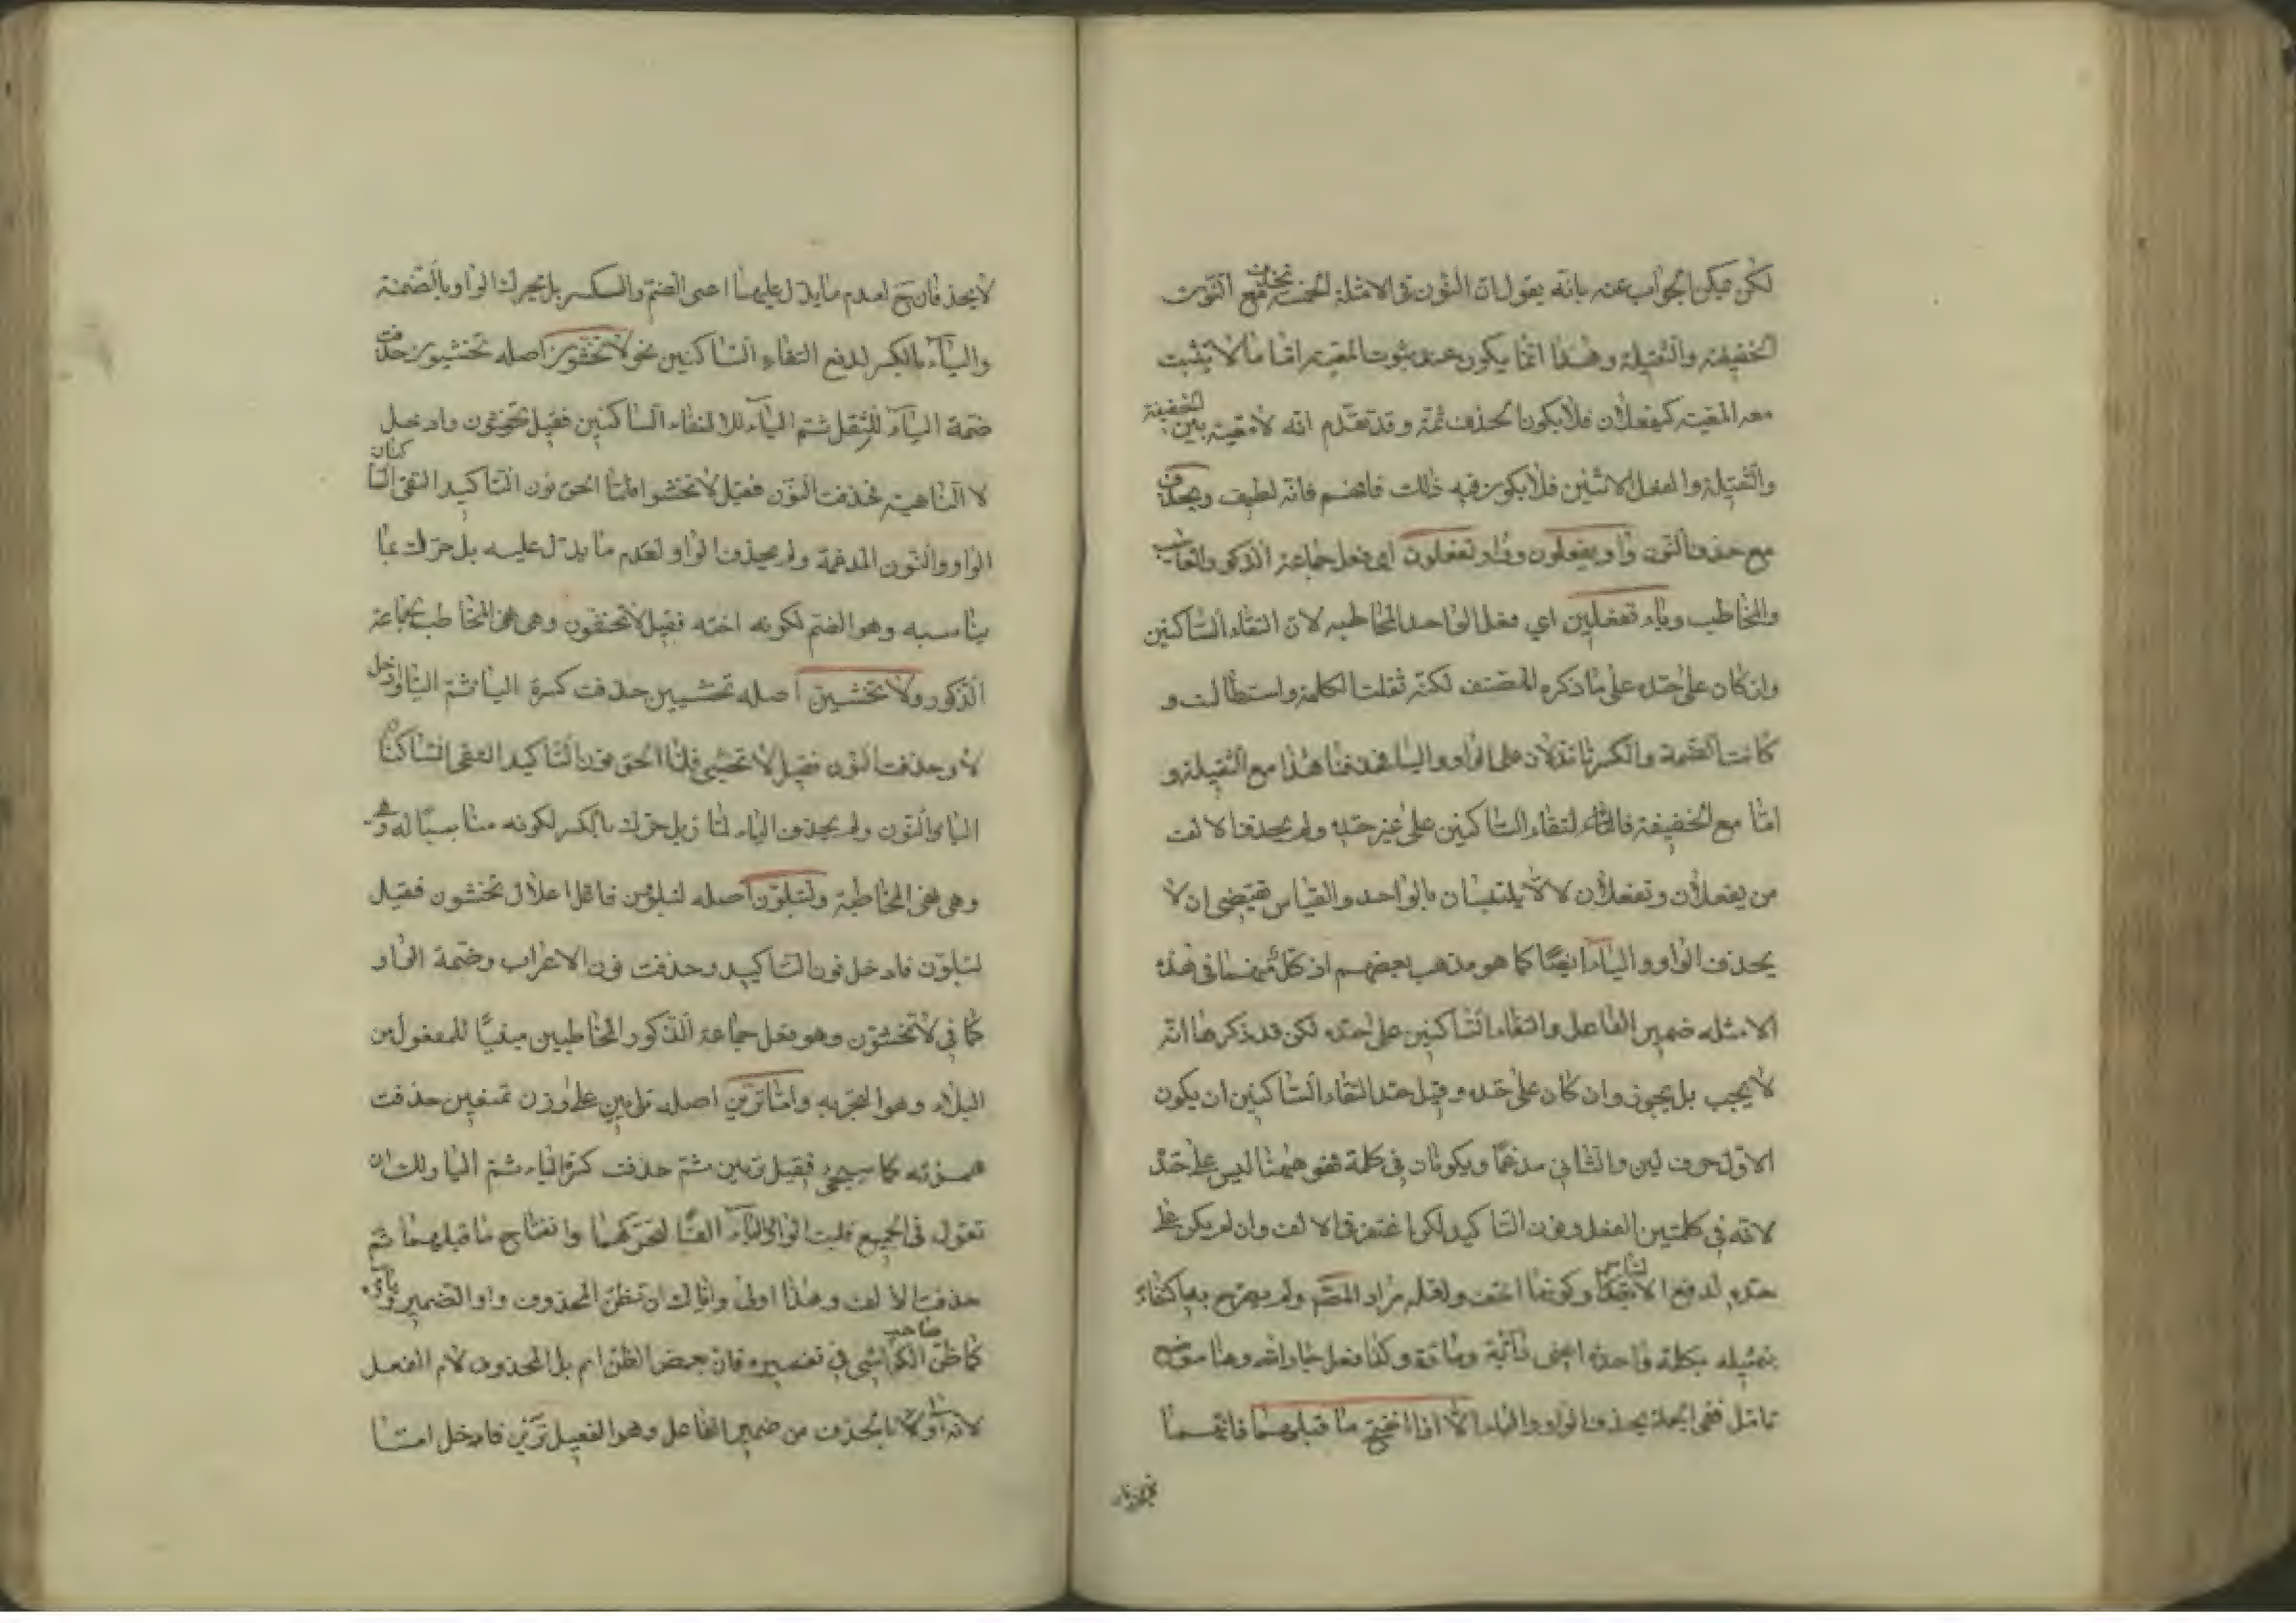 لكن يمكن الجواب عنه بانه يقول ان النون فى الامثلة الخمسة تحذف مع النون
الخفيفة والثقيلة وهذا انما يكون عند ثبوت المعية اما ما لا يثبت
معه المعية كيفعلان فلا يكون الحذف ثمة وقد تقدم انه لا معية بين الخفيفة
والثقيلة والفعل الاثنين فلا يكون فيه ذلك فافهم فانه لطيف ويحذف
مع حذف النون واو يفعلون وواو تفعلون اى فعل جماعة الذكور الغائب
والمخاطب وياء تفعلين اي فعل الواحد المخاطبه لان التقاء الساكنين
وان كان على حده على ما ذكره المصنف لكنه ثقلت الكلمة واستطالت و
كانت الضمة والكسرة تدلان على الواو والياء فحذفتا هذا مع الثقيلة و
اما مع الخفيفة فالتقاء الساكنين على غير حده ولم يحذف الالف
من يفعلان وتفعلان لئلا يلتبسان بالواحد والقياس يقتضى ان لا
يحذف الواو والياء ايضا كما هو مذهب بعضهم اذ كل منهما فى هذه
الامثله ضمير الفاعل والتقاء الساكنين على حده لكن قد ذكرها انه
لا يجب بل يجوز وان كان على حده وقيل حد التقاء الساكنين ان يكون
الاول حرف لين والثانى مدغما ويكونان فى كلمة فهو هيهنا ليس على حده
لانه فى كلمتين الفعل ونون التاكيد ولكن اغتفر فى الالف وان لم يكن على
حده لدفع الالتباس وكونها اخف ولعله مراد المصنف ولم يصرح به اكتفاء
بتمثيله بكلمة واحدة اعنى دابة وكذا فعل جار الله وهنا موضع
تامل ففى الجملة يحذف الواو والياء الا اذا انفتح ما قبلهما فانهما
لا يحذفان ح لعدم ما يدل عليهما اعنى الضم والكسر بل يحرك الواو بالضمة
والياء بالكسر لدفع التقاء الساكنين نحو لا تخشون اصله تخشيون حذفت
ضمة الياء للثقل ثم الياء لالتقاء الساكنين فقيل تخشون وادخل
لا الناهية فحذفت النون فقيل لا تخشوا فلما الحق نون التاكيد التقى الساكنان
الواو والنون المدغمة ولم يحذف الواو لعدم ما يدل عليه بل حرك بما
يناسبه وهو الضم لكونه اخته فقيل لا تخشون وهى نهى المخاطب لجماعة
الذكور ولا تخشين اصله تخشيين حذفت كسرة الياء ثم الياء وادخل
لا وحذفت النون فقيل لا تخشى فلما الحق نون التاكيد التقى الساكنان
الياء والنون ولم يحذف الياء لما بل حرك بالكسر لكونه مناسبا له
وهى نهى المخاطبة ولتبلون اصله لتبلوون فاعل اعلال تخشون فقيل
لتبلون فادخل نون التاكيد وحذفت نون الاعراب وضمة الواو
كما فى لا تخشون وهو فعل جماعة الذكور المخاطبين مبنيا للمفعول من
البلاء وهو التجربه واما ترين اصله ترايين على وزن تمنعين حذفت
همزته كما سيجئ فقيل تريين ثم حذفت كسرة الياء ثم الياء ولك ان
تقول فى الجميع قلبت الواو والياء الفا لتحركهما وانفتاح ما قبلهما ثم
حذفت الالف وهذا اولى واياك ان تظن المحذوف واو الضمير وياؤه
كما ظن صاحب الكواشى فى تفسيره فان بعض الظن اثم بل المحذوف لام الفعل
لانه اولى بالحذف من ضمير الفاعل وهو فقيل ترين فادخل اما